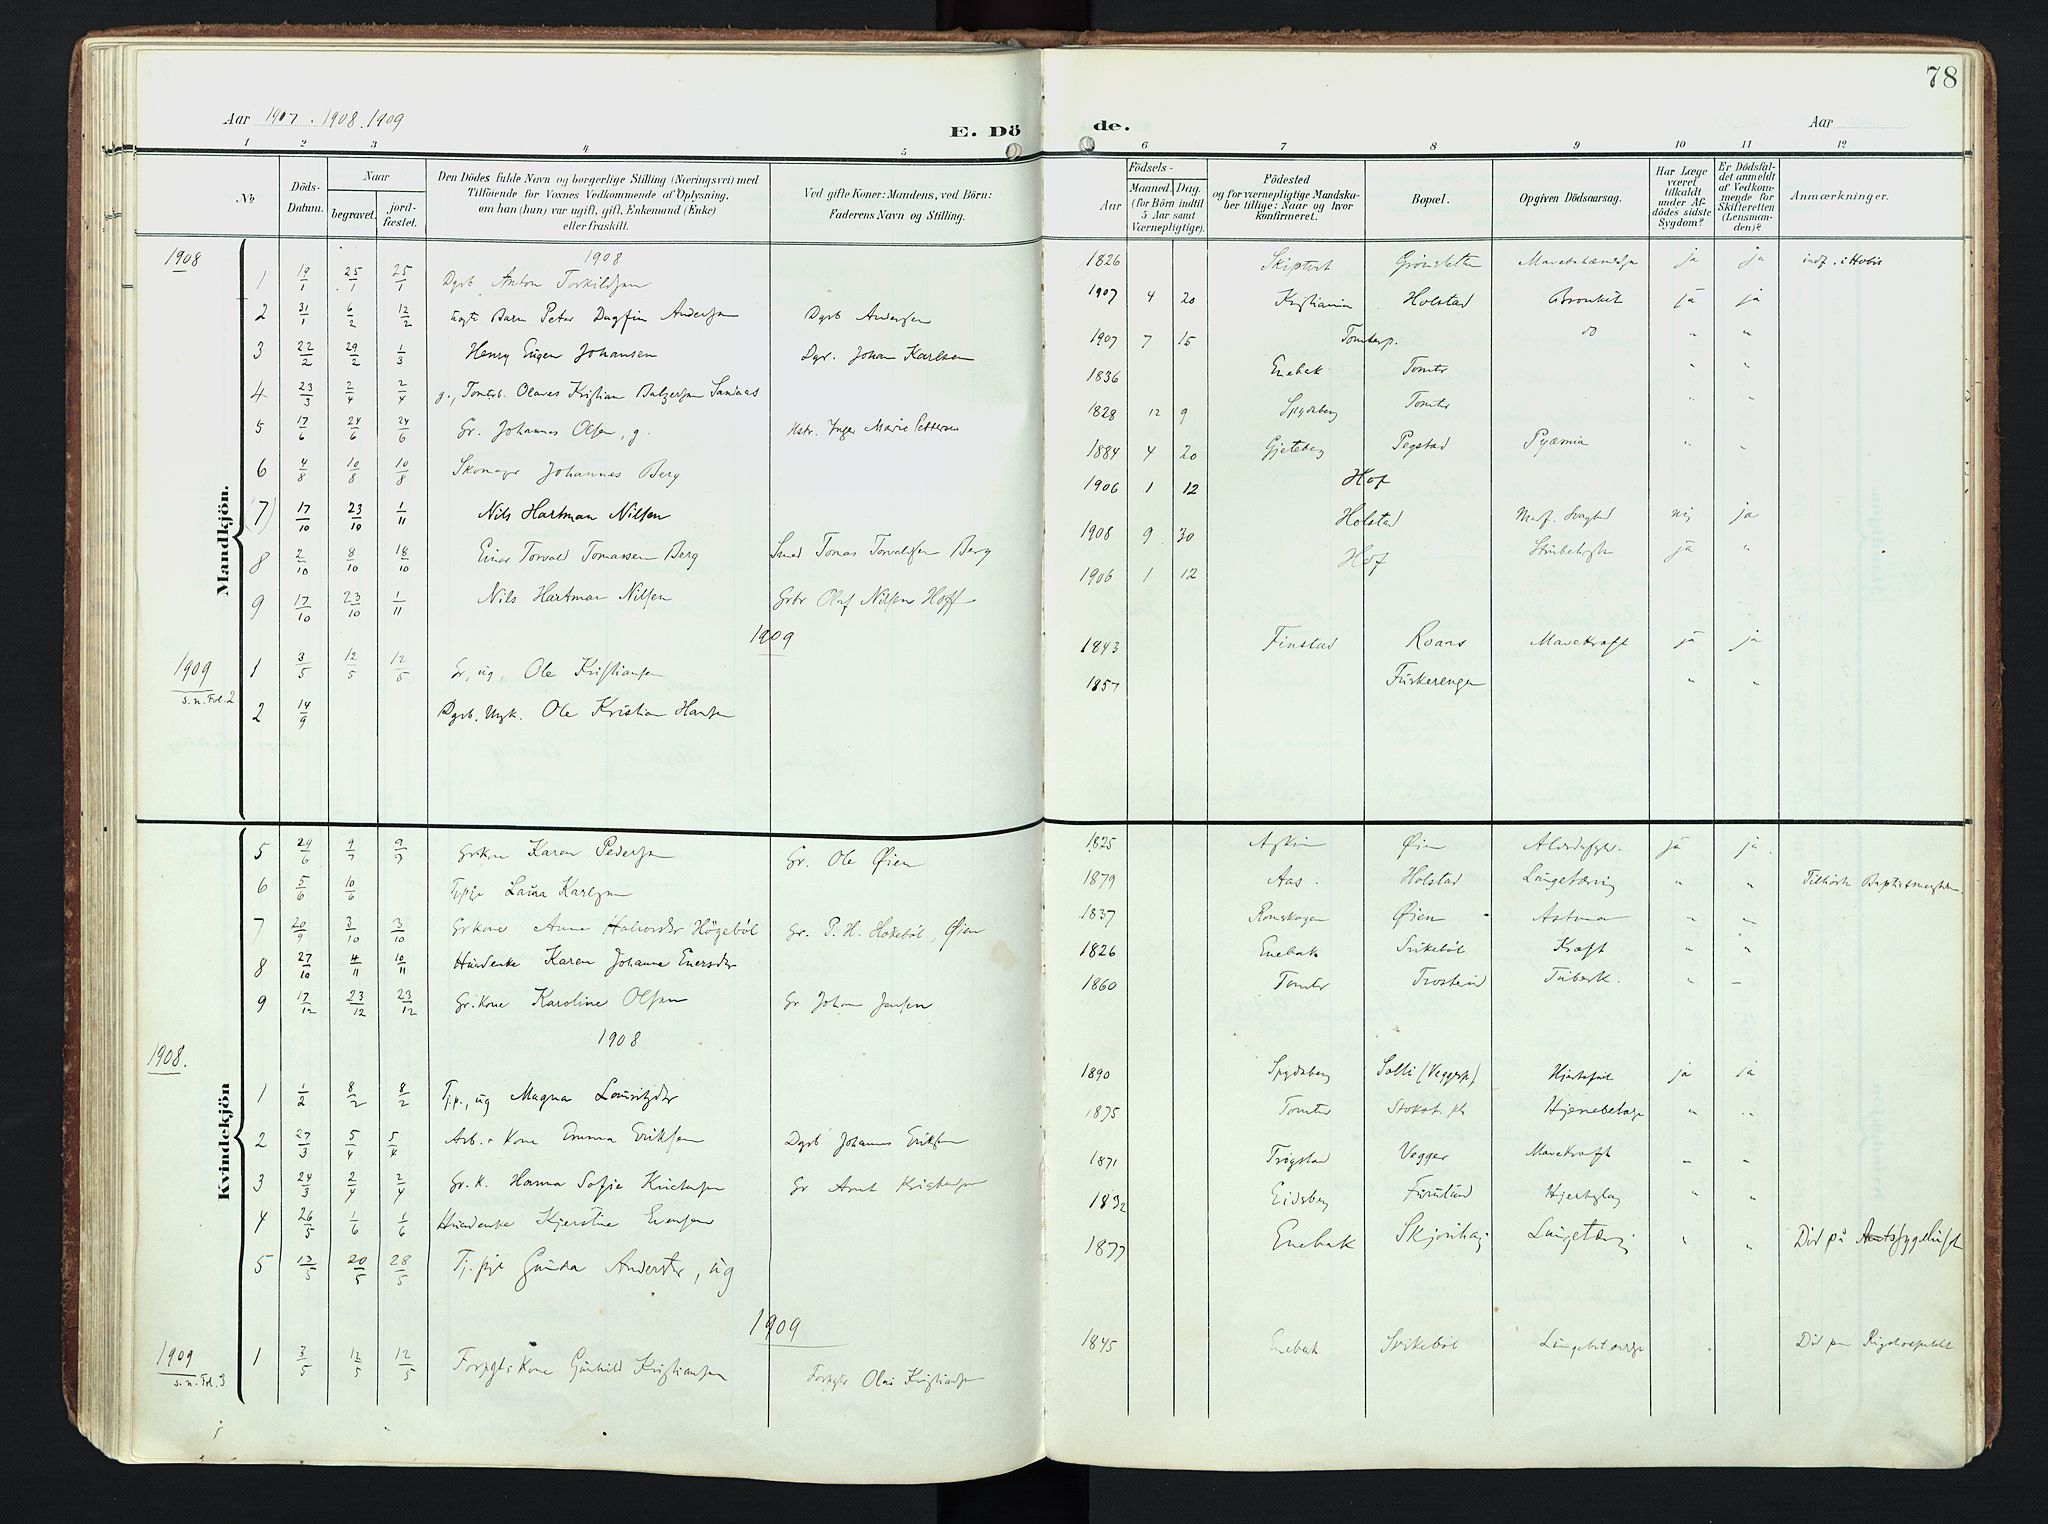 78
Aar 1907. 1908. 1909
E. Dö de.
Aar
1 2 3 4 5 6 7 8 9 10 11 12
No
Döds-Datum.
Naar
begravet.
jord-fæstet.
Den Dödes fulde Navn og borgerlige Stilling (Næringsvei) med
Tilföiende for Voxnes Vedkommende af Oplysning,
om han (hun) var ugift, gift, Enkemand (Enke)
eller fraskilt.
Ved gifte Koner: Mandens, ved Börn:
Faderens Navn og Stilling.
Födsels-
Aar
Maaned. Dag.
(for Börn indtil
5 Aar samt
Værnepligtige).
Födested
og for værnepligtige Mandska-
ber tillige: Naar og hvor
konfirmeret.
Bopæl.
Opgiven Dödsaarsag.
Har Læge
været
tilkaldt
under Af-
dödes sidste
Sygdom?
Er Dödsfal-
det anmeldt
af Vedkom-
mende for
Skifteretten
(Lensman-
den)?
Anmærkninger.
Mandkjön.
1908
1908
1 19/1 25/1 25/1 Dgrb. Anton Torkildsen 1826 ja ja
2 31/1 6/2 12/2 Barn Peter Dagfin Andersen Dgrb Andersen 1907 4 20 Kristiania Holstad Bronkit ja ja
3 22/2 29/2 1/3 Henry Eugen Johansen Dgr. Johan Karlsen 1907 7 15 Tomterp. do " "
4 23/3 2/4 2/4 g., Olaves Kristian 1836 Enebak Tomter " "
5 17/6 24/6 24/6 Gr. Johannes Olsen, g. Hstr. Inger Marie Pettersen 1828 12 9 Spydeberg Tomter " "
6 4/8 10/8 10/8 Skomager Johannes Berg 1884 4 20 Pegstad Pyæmia " "
(7) 17/10 23/10 1/11 Nils Hartman Nilsen 1906 1 12 Hof
8 2/10 8/10 18/10 Einar Torvald Tomassen Berg Smed Tomas Torvaldsen Berg 1908 9 30 Holstad Medf. Svaghed nej ja
9 17/10 23/10 1/11 Nils Hartman Nilsen Grbr Olaf Nilsen Hoff 1906 1 12 Hof Strubehoste ja "
1909
1909
s. n. Fol. 2
1 3/5 12/5 12/5 Gr, ug, Ole Kristiansen 1843 Finstad Roaas Mavekraft ja ja
2 14/9 Dgrb. Ungk. Ole Kristian Hansen 1857 Fuskerengen " "
Kvindekjön
5 29/6 9/7 9/7 Grkone Karen Pedersen Gr. Ole Øien 1825 Askim Øien ja ja
6 5/6 10/6 Tjpje Laura Karlsen 1879 Aas. Holstad Lungetæring " "
7 20/9 3/10 3/10 Grkone Anne Halvorsdtr Högeböl Gr. P. H. Högeböl, Øien 1837 Romskogen Øien Astma " "
8 27/10 4/11 10/11 Husenke Karen Johanne Enersdtr 1826 Enebak Svikeböl Kræft " "
9 17/12 23/12 23/12 Gr.kone Karoline Olsen Gr Johan Jensen 1860 Tomter Trostein Tuberk. " "
1908
1908.
1 1/2 8/2 8/2 Tj.p., ug Magna Louritzdtr 1890 Spydeberg Solli (Veggersp) Hjertefeil ja ja
2 27/3 5/4 5/4 Arb.s Kone Emma Eriksen Dgrb Johannes Eriksen 1875 Tomter " "
3 24/3 2/4 2/4 Gr. k. Hanna Sofie Kristensen Gr Arnt Kristensen 1871 Trøgstad Vegger Mavekræft " "
4 26/5 1/6 1/6 Husenke Kjerstine Evensen 1832 Eidsberg Furulund Hjerteslag " "
5 13/5 20/5 28/5 Tj.pje Gunda Andersdtr, ug 1877 Enebak Lungetæring " " Död på Amtssygehuset
1909
1909
s. n. Fol. 3
1 3/5 12/5 12/5 Forpgts Kone Gunhild Kristiansen Forpgtr Olai Kristiansen 1845 Enebak Svikeböl Död paa Rigshospitalet